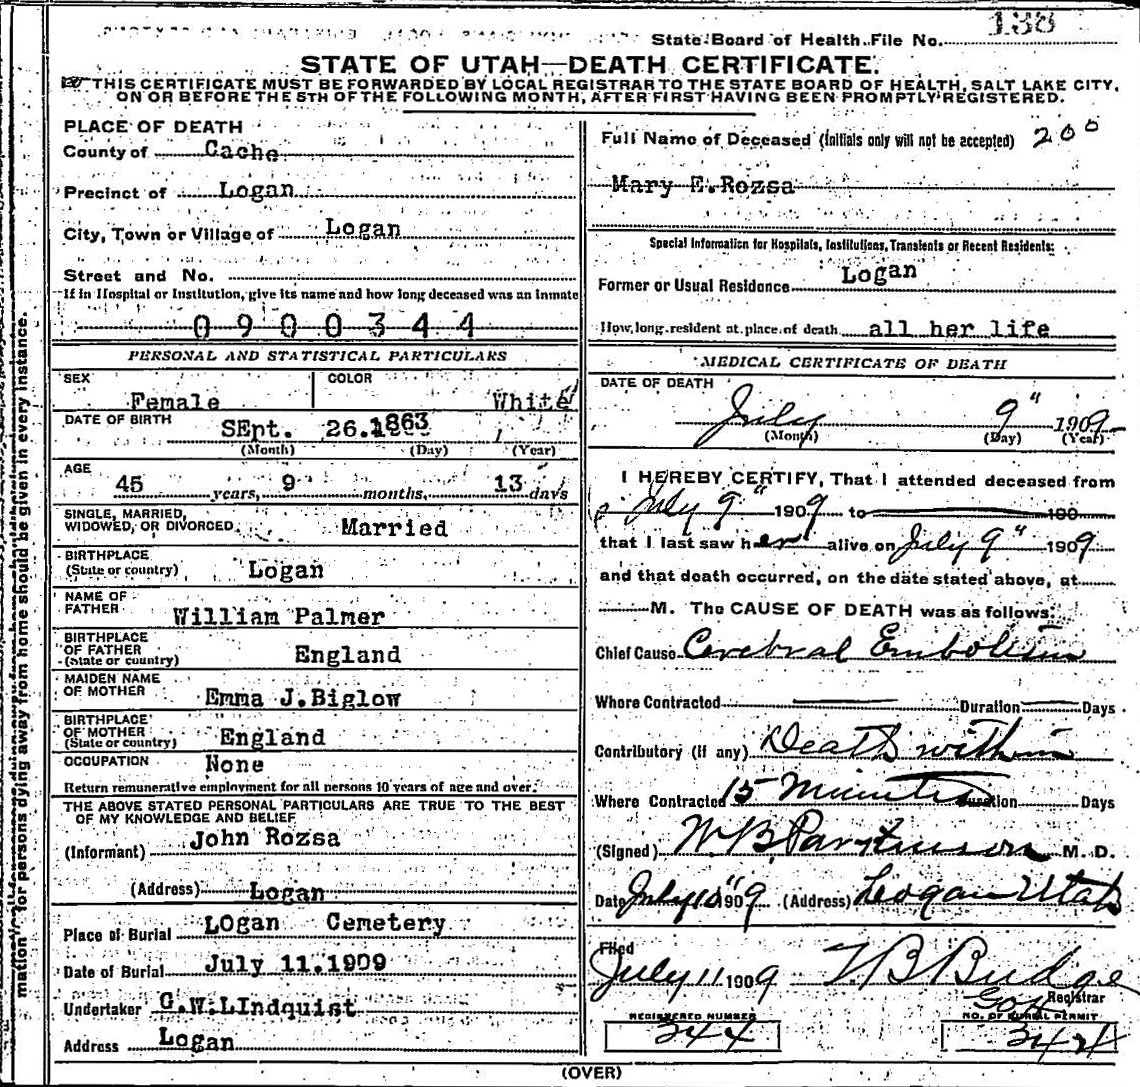 138
State Board of Health File No.
STATE OF UTAH—DEATH CERTIFICATE.
THIS CERTIFICATE MUST BE FORWARDED BY LOCAL REGISTRAR TO THE STATE BOARD OF HEALTH, SALT LAKE CITY,
ON OR BEFORE THE 5TH OF THE FOLLOWING MONTH, AFTER FIRST HAVING BEEN PROMPTLY REGISTERED.
PLACE OF DEATH
County of Cache
Precinct of Logan
City, Town or Village of Logan
Street and No.
If in Hospital or Institution, give its name and how long deceased was an inmate
0900344
PERSONAL AND STATISTICAL PARTICULARS
SEX COLOR
Female White
DATE OF BIRTH SEpt. 26.1863
(Month) (Day) (Year)
AGE
45 years, 9 months, 13 days
SINGLE, MARRIED,
WIDOWED, OR DIVORCED Married
BIRTHPLACE
(State or country) Logan
NAME OF
FATHER William Palmer
BIRTHPLACE
OF FATHER
(State or country) England
MAIDEN NAME
OF MOTHER Emma J.Biglow
BIRTHPLACE
OF MOTHER
(State or country) England
OCCUPATION None
Return remunerative employment for all persons 10 years of age and over.
THE ABOVE STATED PERSONAL PARTICULARS ARE TRUE TO THE BEST
OF MY KNOWLEDGE AND BELIEF
(Informant) John Rozsa
(Address) Logan
Place of Burial LOgan Cemetery
Date of Burial July 11.1909
Undertaker G.W.LIndquist
Address Logan
Full Name of Deceased (Initials only will not be accepted) 200
Mary E.Rozsa
Special Information for Hospitals, Institutions, Transients or Recent Residents:
Former or Usual Residence Logan
How long resident at place of death all her life
MEDICAL CERTIFICATE OF DEATH
DATE OF DEATH
July 9" 1909
(Month) (Day) (Year)
I HEREBY CERTIFY, That I attended deceased from
July 9" 1909 to 190
that I last saw her alive on July 9" 1909
and that death occurred, on the date stated above, at
M. The CAUSE OF DEATH was as follows:
Chief Cause Cerebral Embolism
Where Contracted Duration Days
Contributory (if any) Death within
Where Contracted 15 Minutes Duration Days
(Signed) W.B. Parkinson M. D.
Date July 10" 1909 (Address) Logan Utah
Filed
July 11 1909 T B Budge
Registrar
REGISTERED NUMBER NO. OF BURIAL PERMIT
344 344
(OVER)
mation" for persons dying away from home should be given in every instance.